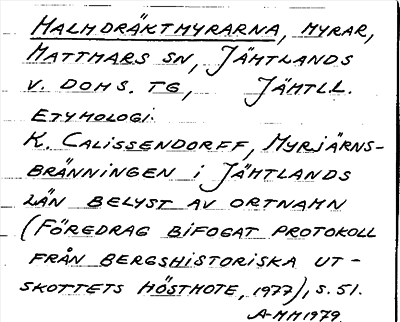 MALMDRÄKTMYRARNA, MYRAR,
MATTMARS SN, JÄMTLANDS
V. DOMS. TG, JÄMTL.L.
ETYMOLOGI:
K. CALISSENDORFF, MYRJÄRNS-
BRÄNNINGEN I JÄMTLANDS
LÄN BELYST AV ORTNAMN
(FÖREDRAG BIFOGAT PROTOKOLL
FRÅN BERGSHISTORISKA UT-
SKOTTETS HÖSTMÖTE, 1977), S. 51.
A-MM 1979.